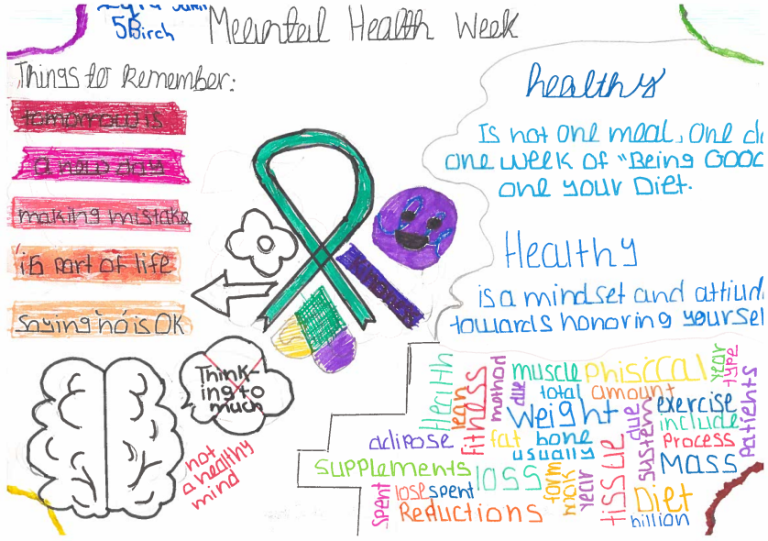 5Birch
Meeintail Health Week
Things to Remember:
tomorrow is
a new day
making mistake
is part of life
saying no is OK
healthy
Is not one meal, one d
one week of "Being GOOD
one your Diet.
Healthy
is a mindset and attiud
towards honoring yoursel
Think-
ing to
much
not
a healthy
mind
Health
lean
fitness
mothod
due
muscle
phisiccal
year
type
total
amount
weight
due
exercise
include
patients
adipose
fat
bone
usually
tissue
system
Process
Mass
supplements
loss
form
mok
year
spent
lose
spent
Reductions
Diet
billion